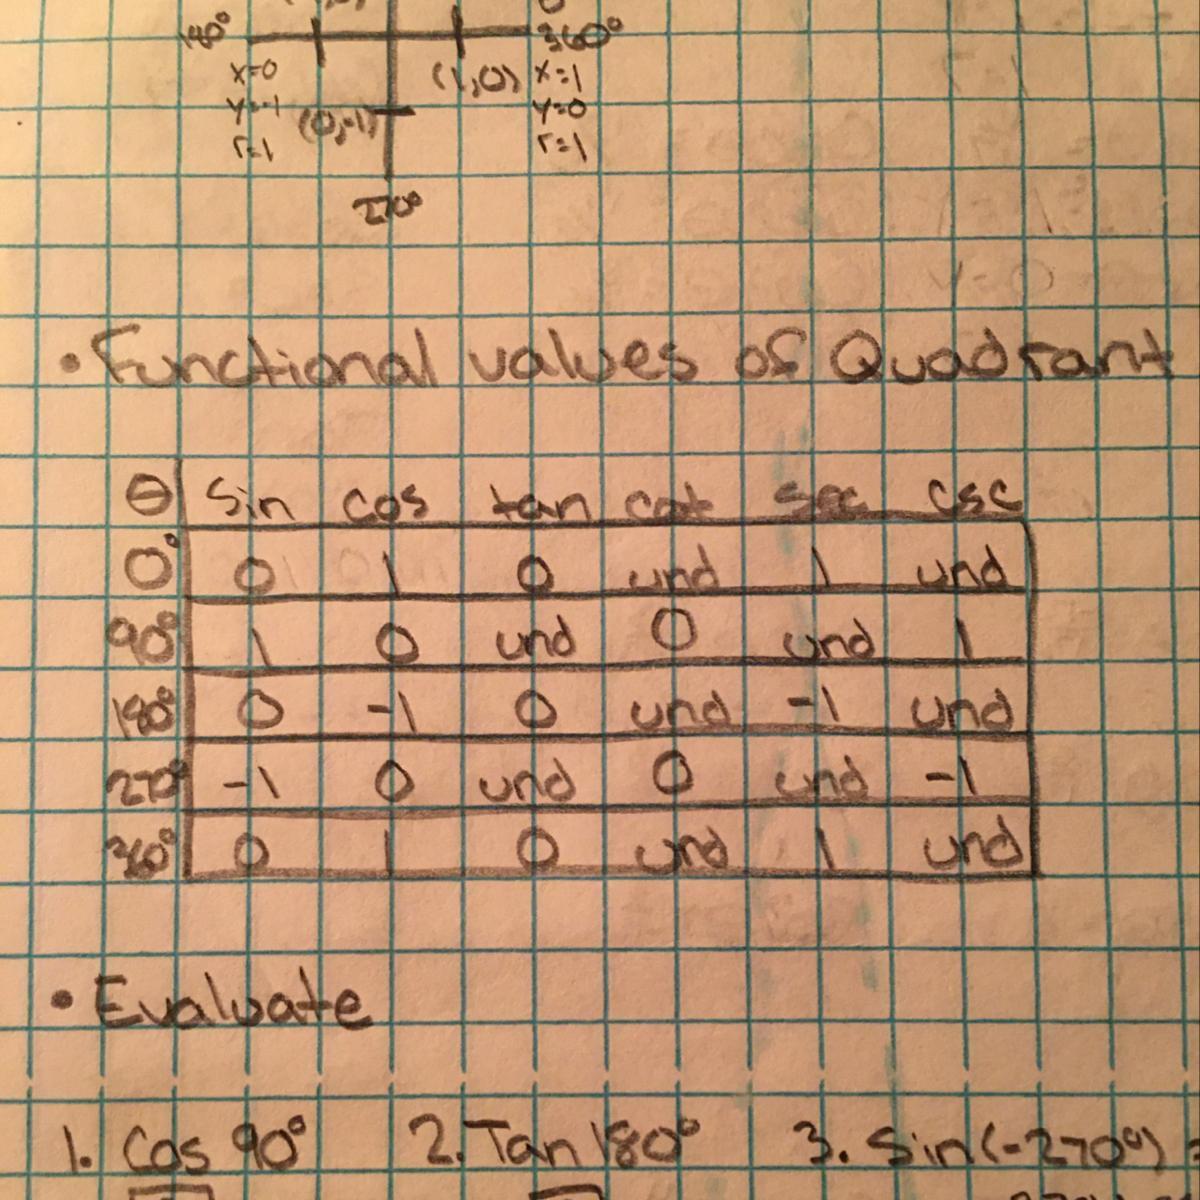 180° 360°
x=0 (1,0) x=1
y=-1 (0,-1) y=0
r=1 r=1
270°
• Functional values of Quadrant
θ sin cos tan cot sec csc
0° 0 1 0 und 1 und
90° 1 0 und 0 und 1
180° 0 -1 0 und -1 und
270° -1 0 und 0 und -1
360° 0 1 0 und 1 und
• Evaluate
1. Cos 90° 2. Tan 180° 3. Sin(-270°) =